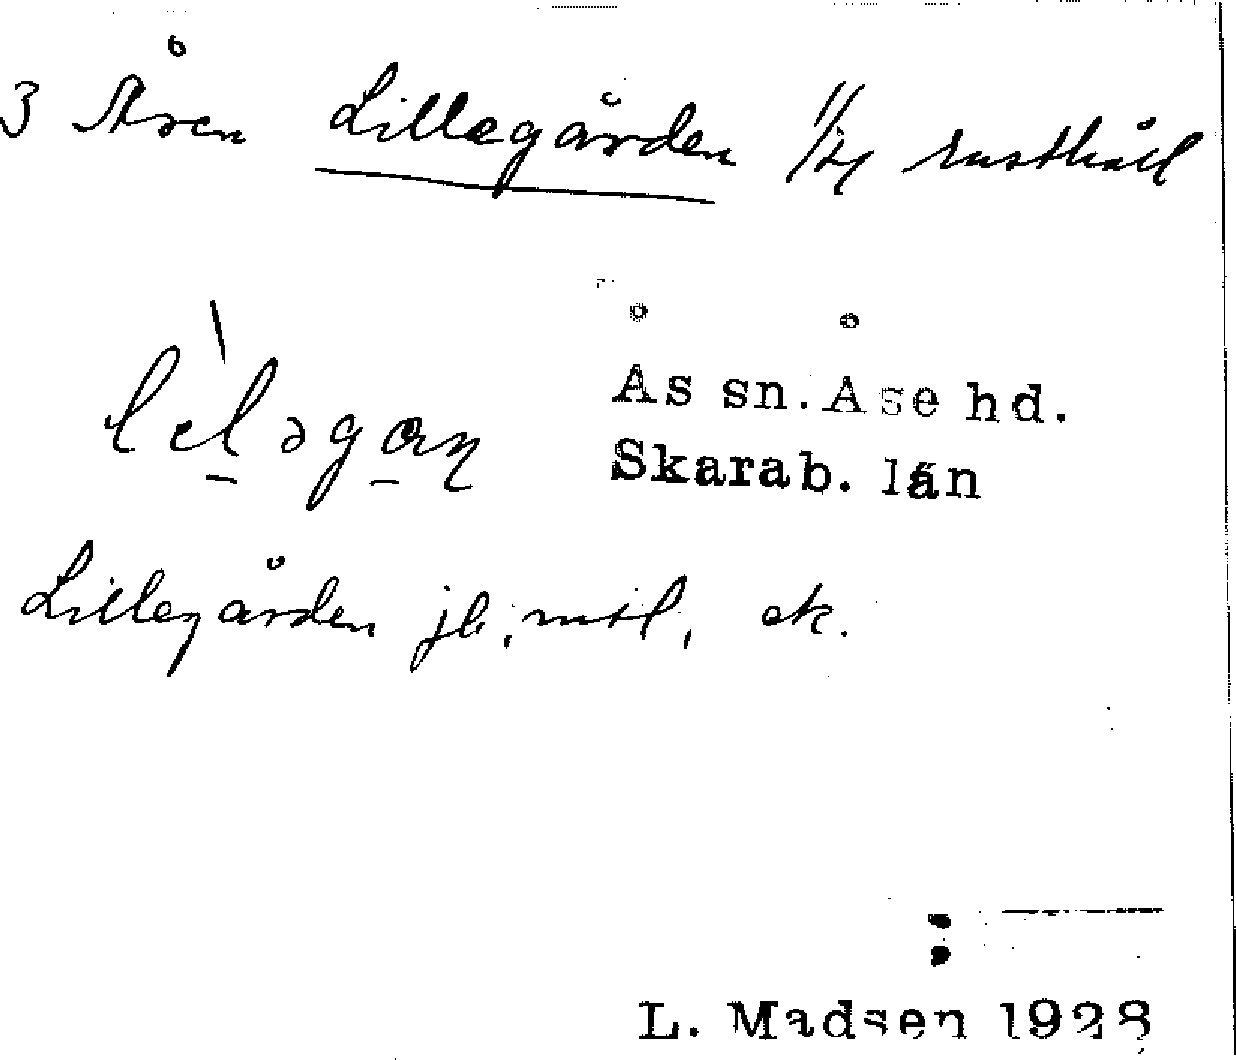 3 Åsen Lillegården 1/4 rusthåll
Ås sn. Åse hd.
Skarab. län
Lillegården jb, mtl, ek.
L. Madsen 1928